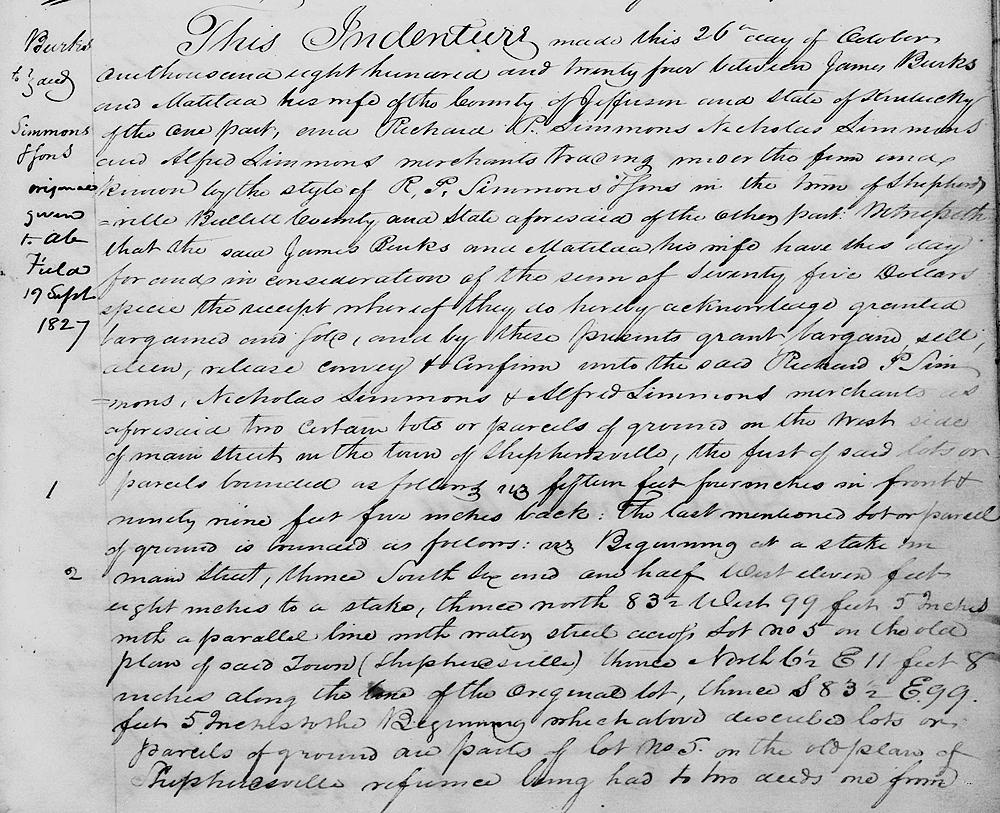 Burks
to } deed
Simmons
& Sons
original
given
to Ab
Field
19 Sept
1827
This Indenture made this 26th day of October
onethousand eight hundred and twenty four between James Burks
and Matilda his wife of the County of Jefferson and State of Kentucky
of the one part, and Richard P. Simmons Nicholas Simmons
and Alfred Simmons merchants trading under the firm and
known by the style of R. P. Simmons & Sons in the town of Shepherds
=ville Bullitt County and State aforesaid of the other part: Witnesseth
that the said James Burks and Matilda his wife have this day
for and in consideration of the sum of Seventy five Dollars
specie the receipt whereof they do hereby acknowledge granted
bargained and sold, and by these presents grant bargain, sell,
alien, release convey & confirm unto the said Richard P. Sim
=mons, Nicholas Simmons & Alfred Simmons merchants as
aforesaid two certain lots or parcels of ground on the west side
of main street in the town of Shephersville, the first of said lots or
1 parcels bounded as follows viz fifteen feet four inches in front &
ninety nine feet five inches back: The last mentioned Lot or parcel
of ground is bounded as follows: viz Beginning at a stake in
2 main Street, thence South Six and one half West eleven feet
eight inches to a stake, thence north 83½ West 99 feet 5 Inches
with a parallel line with water street across Lot no 5 on the old
plan of said Town (Shephersville) thence North 6½ E 11 feet 8
inches along the line of the original lot, thence S 83½ E. 99.
feet 5 Inches to the Beginning which above described lots or
parcels of ground are parts of lot No 5. on the old plan of
Shephersville reference being had to two deeds one from